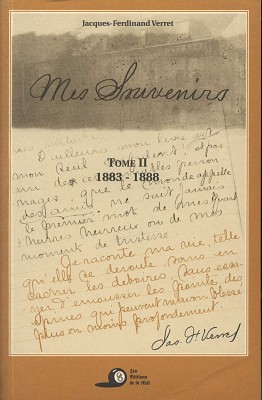 Jacques-Ferdinand Verret
Mes Souvenirs
D'ailleurs mon livre est
mon seul et pas
un de ces
nages, que le monde appelle
des amis, ne sait jamais
le premier mot de mes
heures heureux ou de mes
moment de tristesse.
TOME II
1883 - 1888
Je raconte ma vie, telle
qu'elle se déroule, sans en
cacher les déboires, sans essa-
yer d'émousser les pointes des
épines qui peuvent m'avoir blessé
plus ou moins profondément.
Jas. Fd Verret
Les
Éditions
de la Huit